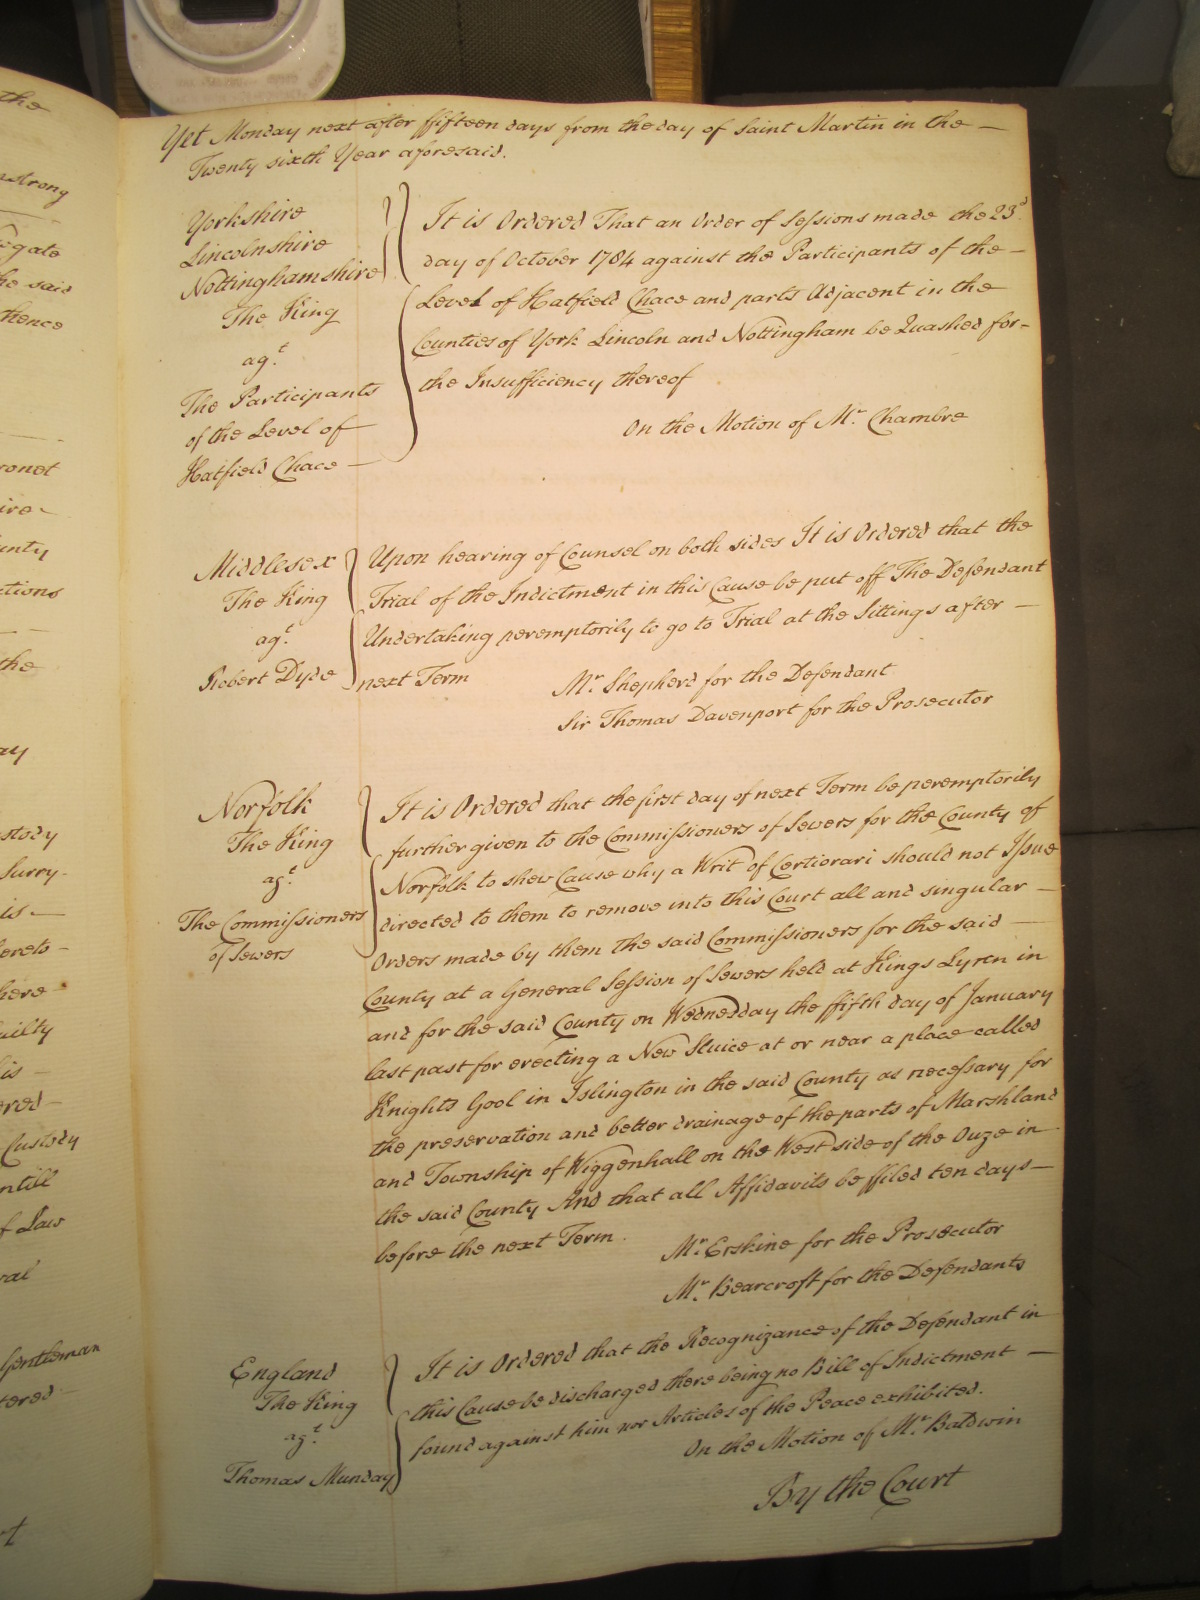 the
nstrong
gate
he said
thence
ronet
ire
unty
ctions
the
ay
stody
Surry.
is —
hereto —
here
uilty
his —
ered —
Custody
ntill
f Law
ral
Gentleman
tered
rt
Yet Monday next after ffifteen days from the day of Saint Martin in the —
Twenty sixth Year aforesaid.
Yorkshire
Lincolnshire
Nottinghamshire
The King
agt.
The Participants
of the Level of
Hatfield Chace —
It is Ordered That an Order of Sessions made the 23d.
day of October 1784 against the Participants of the —
Level of Hatfield Chace and parts Adjacent in the
Counties of York Lincoln and Nottingham be Quashed for -
the Insufficiency thereof
On the Motion of Mr. Chambre
Middlesex
The King
agt.
Robert Dyde
Upon hearing of Counsel on both sides It is Ordered that the
Trial of the Indictment in this Cause be put off The Defendant
Undertaking peremptorily to go to Trial at the Sittings after —
next Term
Mr. Shepherd for the Defendant
Sir Thomas Davenport for the Prosecutor
Norfolk
The King
agt.
The Commissioners
of Sewers
It is Ordered that the first day of next Term be peremptorily
further given to the Commissioners of Sewers for the County of
Norfolk to shew Cause why a Writ of Certiorari should not Issue
directed to them to remove into this Court all and singular —
Orders made by them the said Commissioners for the said —
County at a General Session of Sewers held at Kings Lynn in
and for the said County on Wednesday the ffifth day of January
last past for erecting a New Sluice at or near a place called
Knights Gool in Islington in the said County as necessary for
the preservation and better drainage of the parts of Marshland
and Township of Wiggenhall on the West side of the Ouze in
the said County And that all Affidavits be ffiled ten days —
before the next Term.
Mr. Erskine for the Prosecutor
Mr. Bearcroft for the Defendants
England
The King
agt.
Thomas Munday
It is Ordered that the Recognizance of the Defendant in
this Cause be discharged there being no Bill of Indictment —
found against him nor Articles of the Peace exhibited.
On the Motion of Mr. Baldwin
By the Court